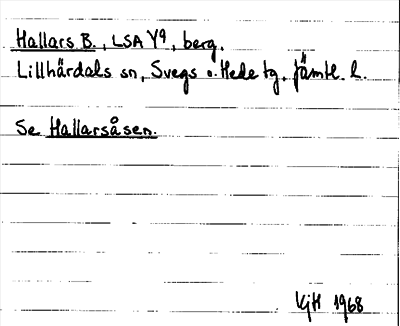 Hallars B., LSA Y9, berg.
Lillhärdals sn, Svegs o. Hede tg, Jämtl. l.
Se Hallarsåsen.
KjH 1968